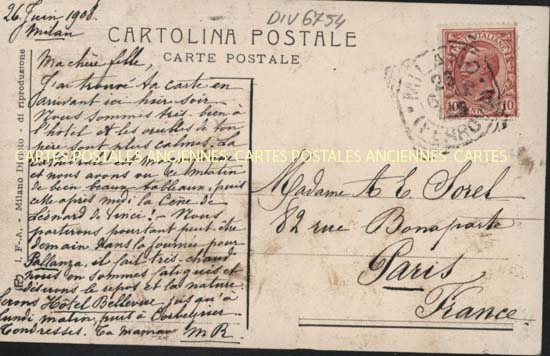 26 Juin 1908.
Milan
DIV6754
CARTOLINA POSTALE
CARTE POSTALE
Ma chère fille,
J'ai trouvé ta carte en
arrivant ici hier soir
Nous sommes très bien à
l'hôtel et les
sont plus calmes.
CARTES POSTALES ANCIENNES CARTES POSTALES ANCIENNES CARTES POSTALES
et nous avons vu ce matin
de bien beaux tableaux, puis
cette après midi la Cène de
Léonard de Vinci! - Nous
partirons pourtant peut être
demain dans la journée pour
Pallanza, il fait très chaud
nous en sommes fatigués et
désirons le repos et la nature
serons Hôtel Bellevue jusqu'à
lundi matin, puis à
Tendresses. Ta maman MR.
I. F.-A. - Milano - di riproduzione
MILANO
(FERROVIA)
10 10
Madame A E Sorel
82 rue Bonaparte
Paris
France